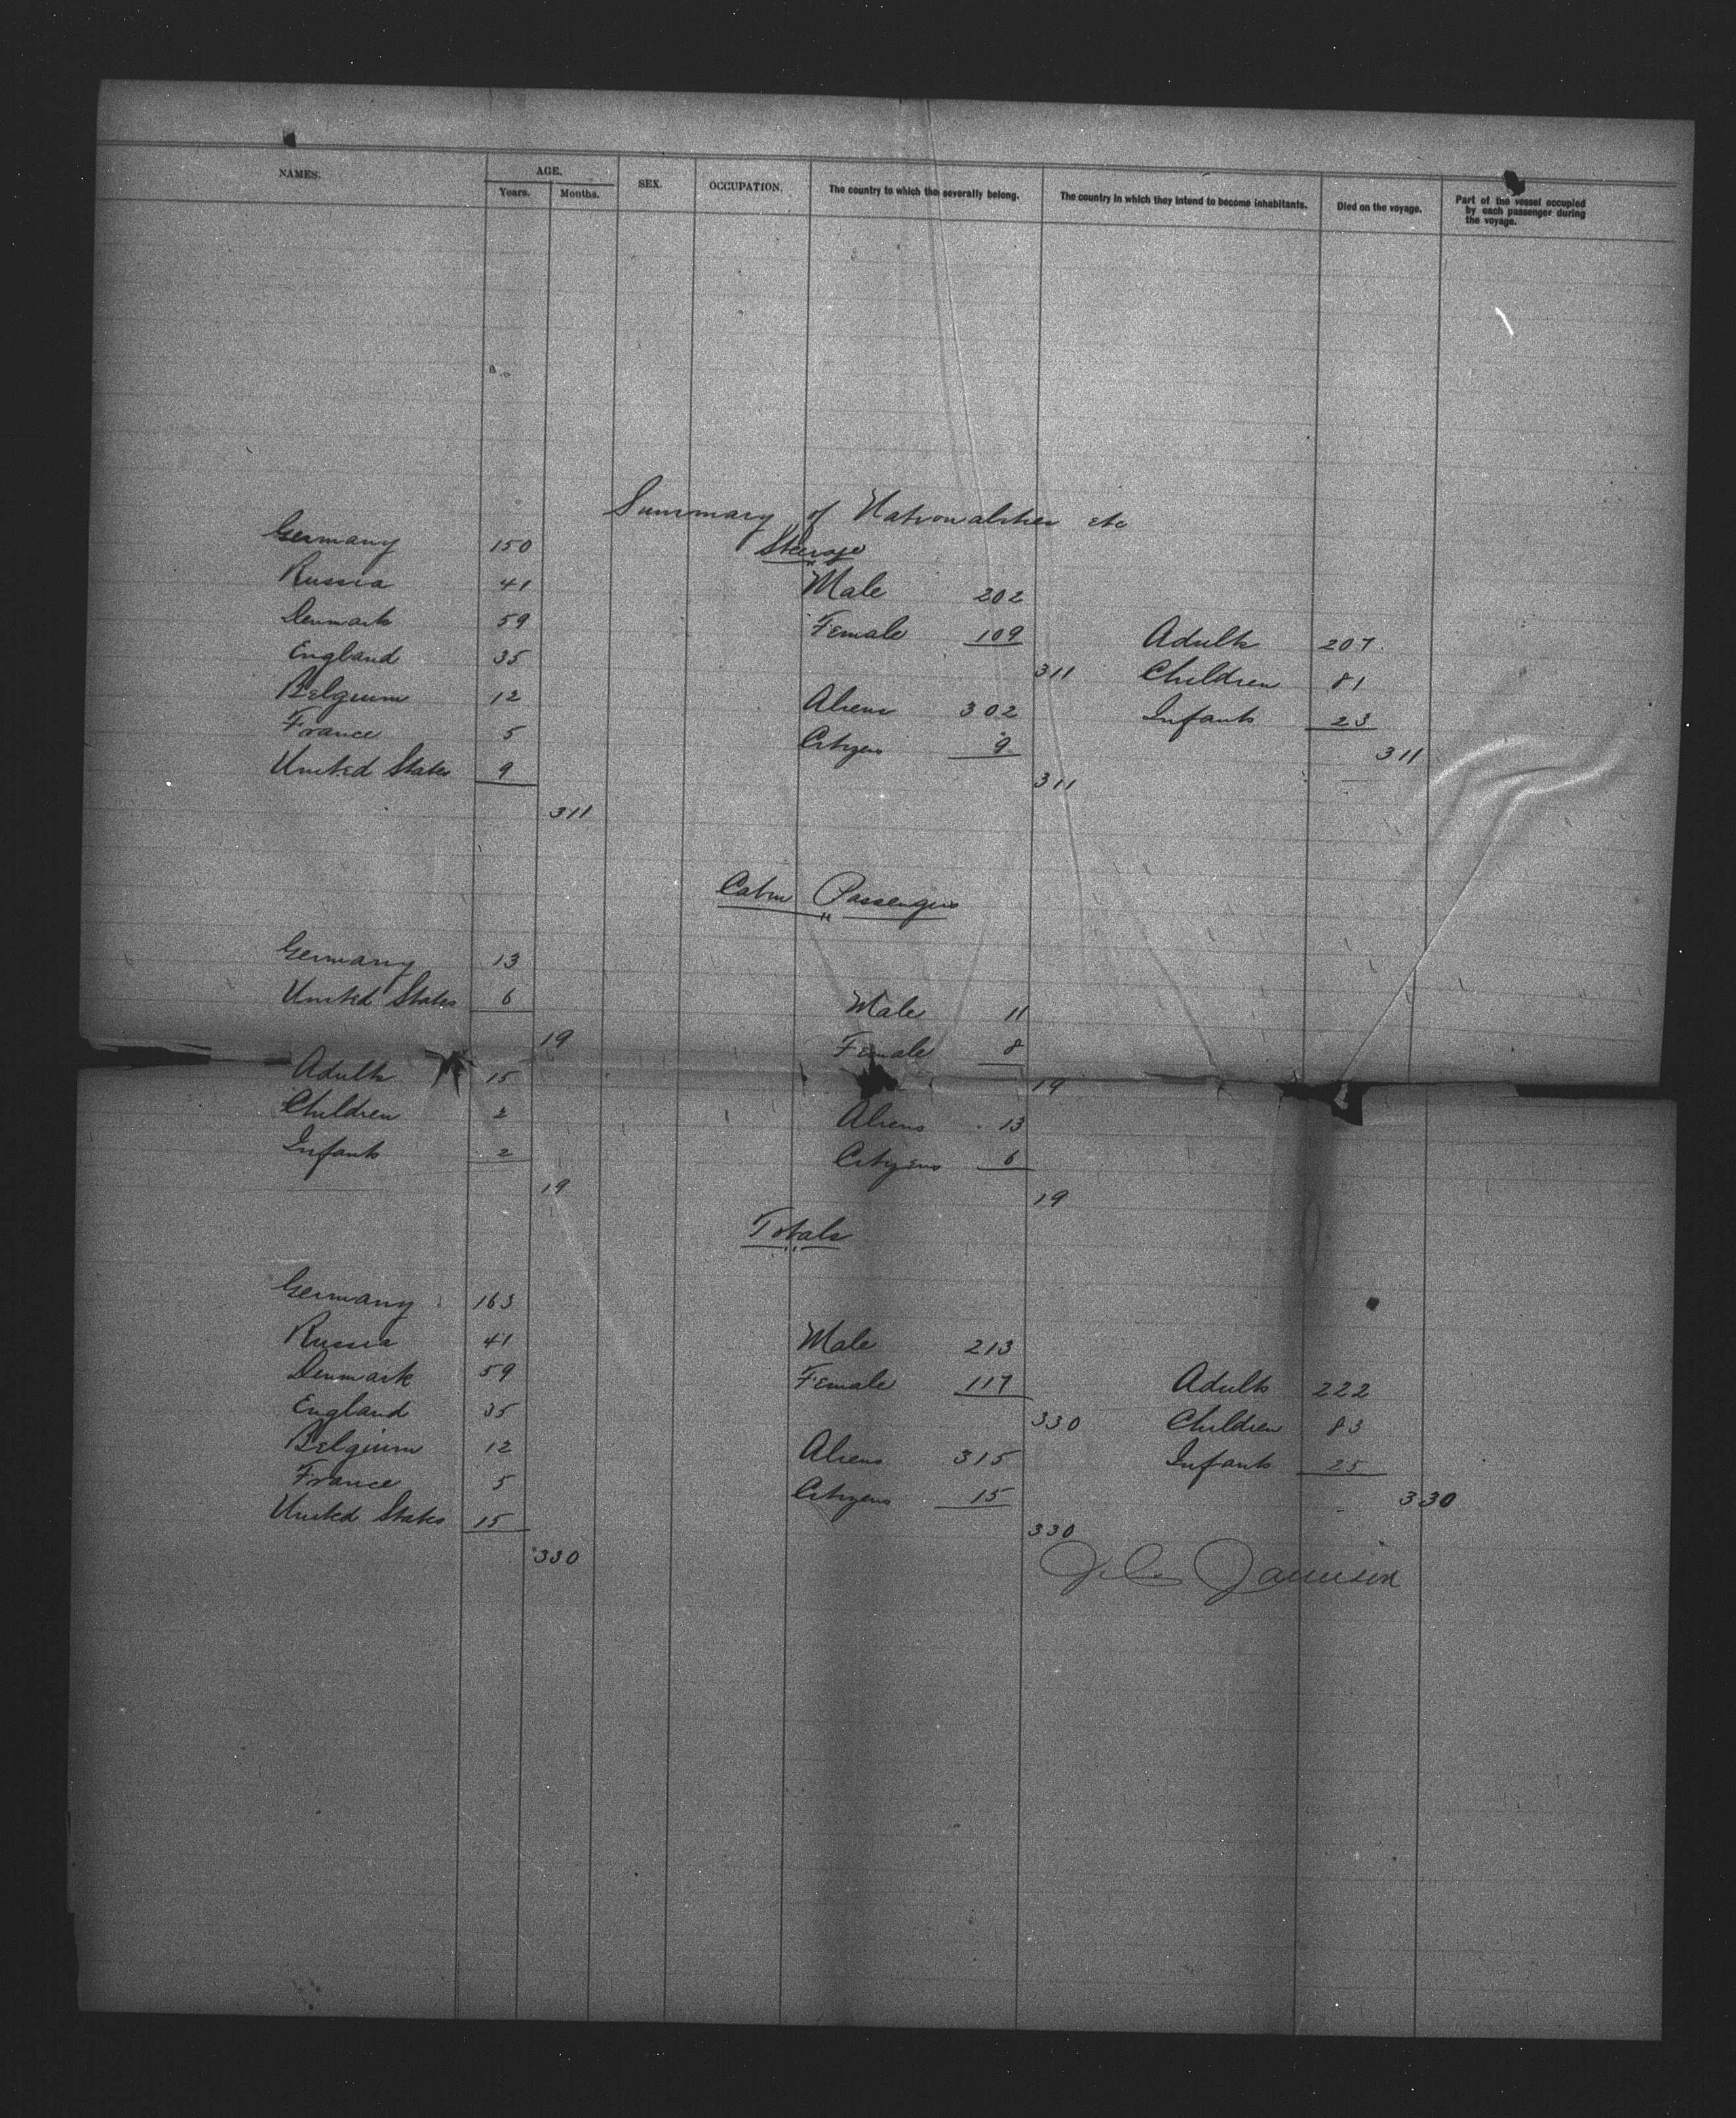 NAMES. AGE. SEX. OCCUPATION. The country to which the severally belong. The country in which they intend to become inhabitants. Died on the voyage. Part of the vessel occupied by each passenger during the voyage.
Years. Months.
Summary of Nationalities etc
Steerage
Germany 150
Russia 41 Male 202
Denmark 59 Female 109 Adults 207
England 35 311 Children 81
Belgium 12 Aliens 302 Infants 23
France 5 Citizens 9 311
United States 9 311
311
Cabin Passengers
Germany 13
United States 6 Male 11
19 Female 8
Adults 15 19
Children 2 Aliens 13
Infants 2 Citizens 6
19 19
Totals
Germany 163
Russia 41 Male 213
Denmark 59 Female 117 Adults 222
England 35 330 Children 83
Belgium 12 Aliens 315 Infants 25
France 5 Citizens 15 330
United States 15 330
330